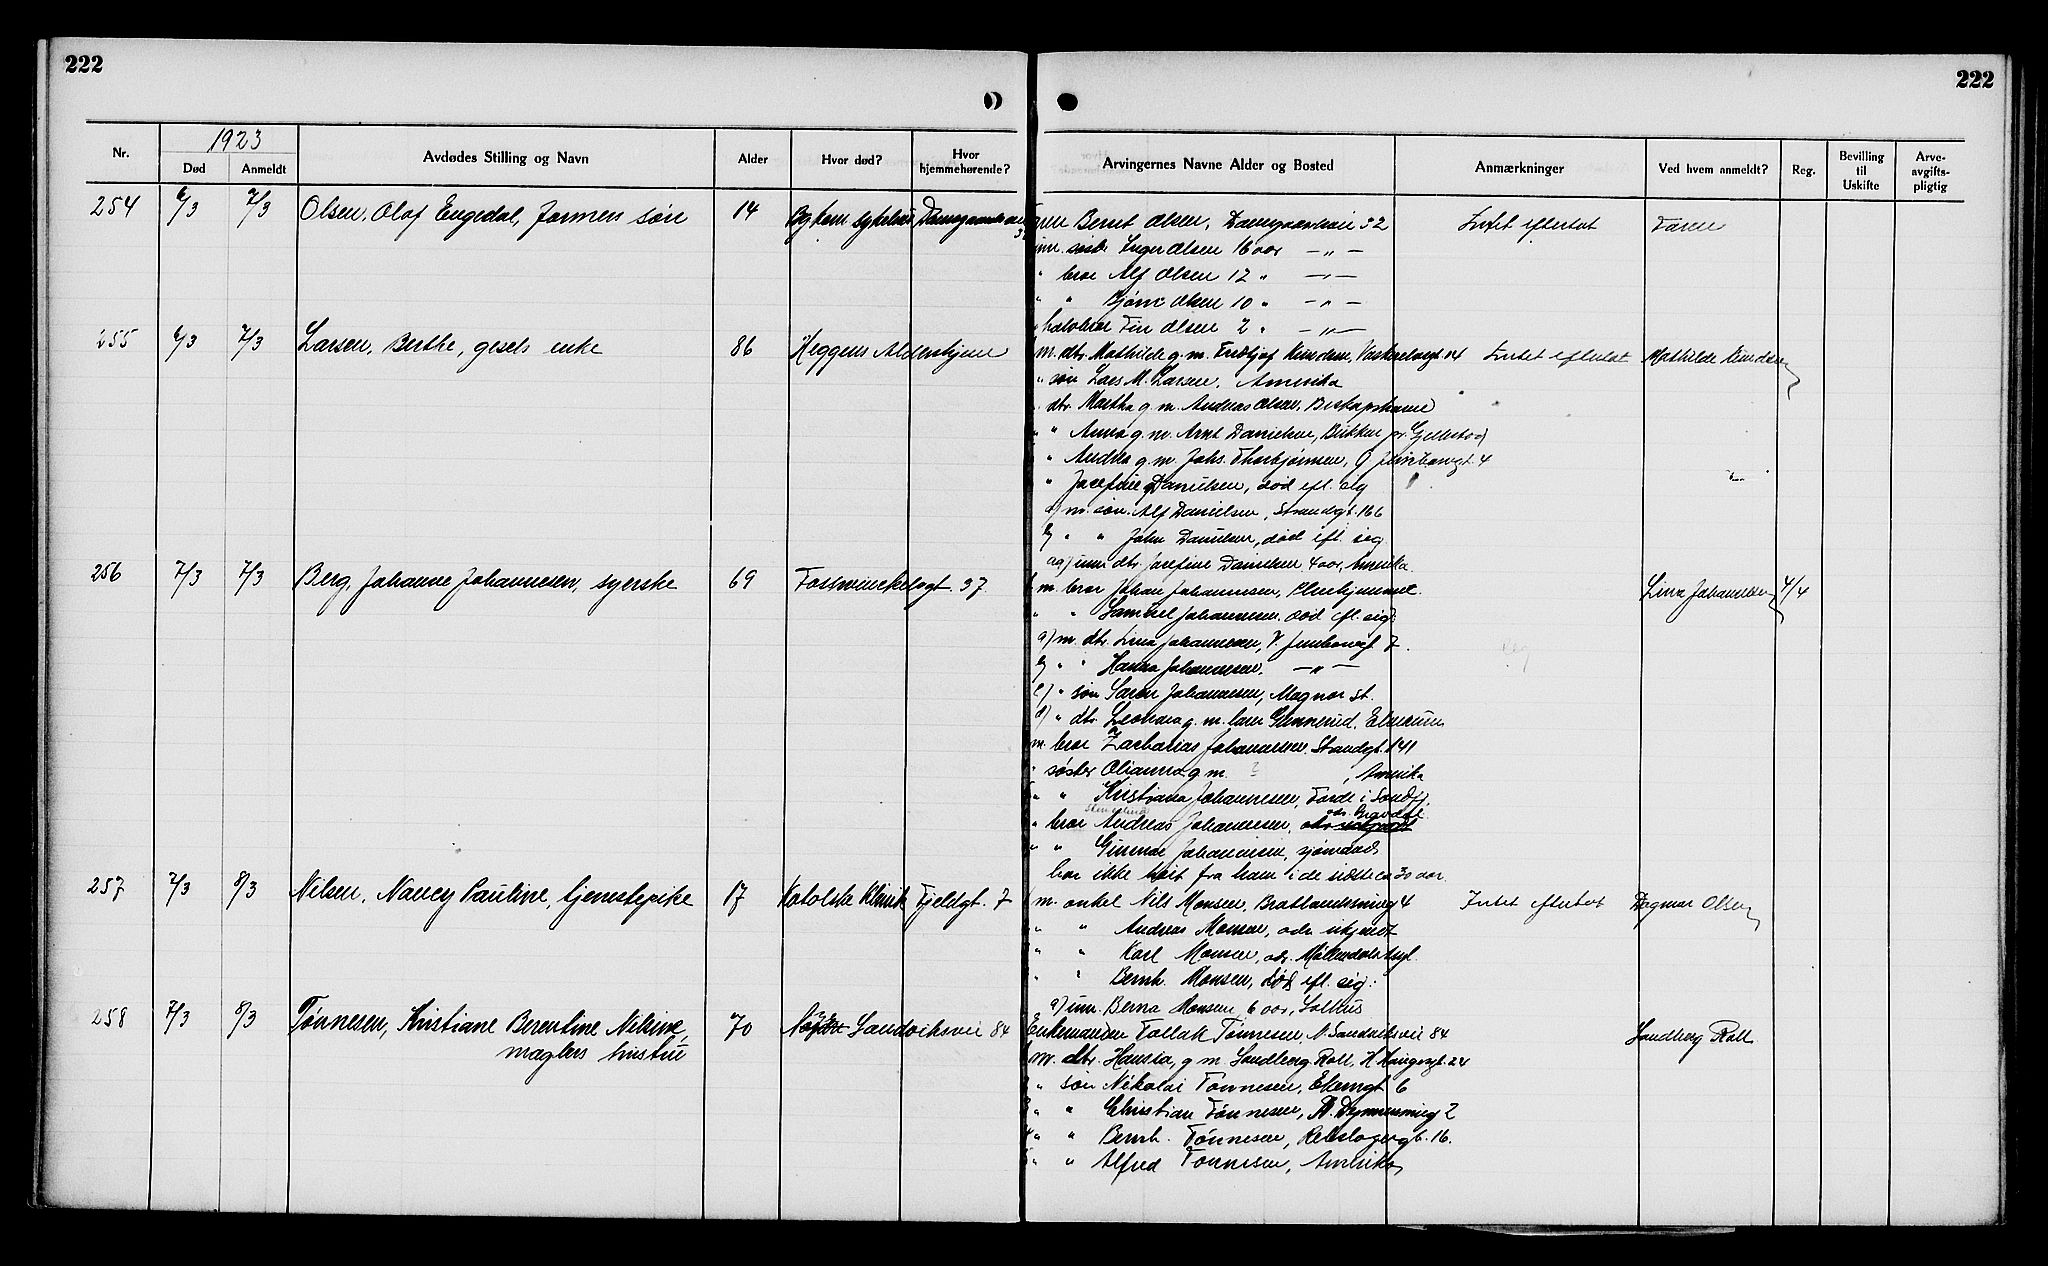 222
222
1923
Nr.
Død
Anmeldt
Avdødes Stilling og Navn
Alder
Hvor død?
Hvor hjemmehørende?
Arvingernes Navne Alder og Bosted
Anmærkninger
Ved hvem anmeldt?
Reg.
Bevilling til Uskifte
Arve-avgifts-pligtig
254 6/3 7/3 Olsen, Olaf Engedal, formens søn 14 sykehus
Faren Bernt Olsen, Damsgaardsveie 32 Intet efterlat Faren
um. søster Inger Olsen 16 aar — " —
" bror Alf Olsen 12 " — " —
" " Bjørn Olsen 10 " — " —
" halvbror Fin Olsen 2 " — " —
255 6/3 7/3 Larsen, Berthe, gesels enke 86 Heggens Aldershjem
m. dtr. Mathilde g. m. Fridtjof Knudsen, 14 Intet efterlat Mathilde Knudsen
" søn Lars M. Larsen, Amerika
dtr. Martha g. m. Andreas Olsen, Biskopshavn
" " Anna g. m. Arnt Danielsen,
" Andrea g. m. Johs. Thorbjørnsen, 4
" Josefine Danielsen, død eft. sig
a) m. søn: Alf Danielsen, Strandgt. 166
b) " " John Danielsen, død eft. sig
aa) um. dtr. Josefine Danielsen 4 aar, Amerika.
256 7/3 7/3 Berg, Johanne Johannesen, syerske 69 Fosswinckelsgt. 37
m. bror Johan Johannesen, Pleiehjemmet. Lina Johannesen 4/4
" " Samuel Johannesen, død eft. sig:
a) m. dtr. Lina Johannesen, V. 7.
b) " " Hansa Johannesen, — " —
c) " søn Søren Johannesen, Magnor st.
d) " dtr. Leonora g. m. Elverum
m. bror Zacharias Johannesen, Strandgt. 141
" søster Olianna g. m. ? , Amerika
" " Kristiana Johannesen, Førde i Søndfj.
" bror Andreas Johannesen,
" " Gunnar Johannesen, sjømand,
har ikke hørt fra ham i de sidste ca 30 aar.
257 7/3 8/3 Nilsen, Nancy Pauline, tjenestepike 17 Katolske Klinik Fjeldgt. 7
m. onkel Nils Monsen, 4 Intet efterlat Dagmar Olsen
" " Andreas Monsen, adr. ukjendt
" " Karl Monsen, adr.
" " Bernh. Monsen, død eft. sig:
a) um. Berna Monsen 6 aar,
258 7/3 8/3 Tønnesen, Kristiane Berentine Nilsine, 70 Sandviksvei 84
maglers hustru
Enkemanden Tollak Tønnesen N. Sandviksvei 84 Sandberg Roll
m. dtr. Hansia, g. m. Sandberg Roll, 24
" søn Nikolai Tønnesen, 6
" " Christian Tønnesen, 2
" " Bernh. Tønnesen, Rebslagergt. 16.
" " Alfred Tønnesen, Amerika